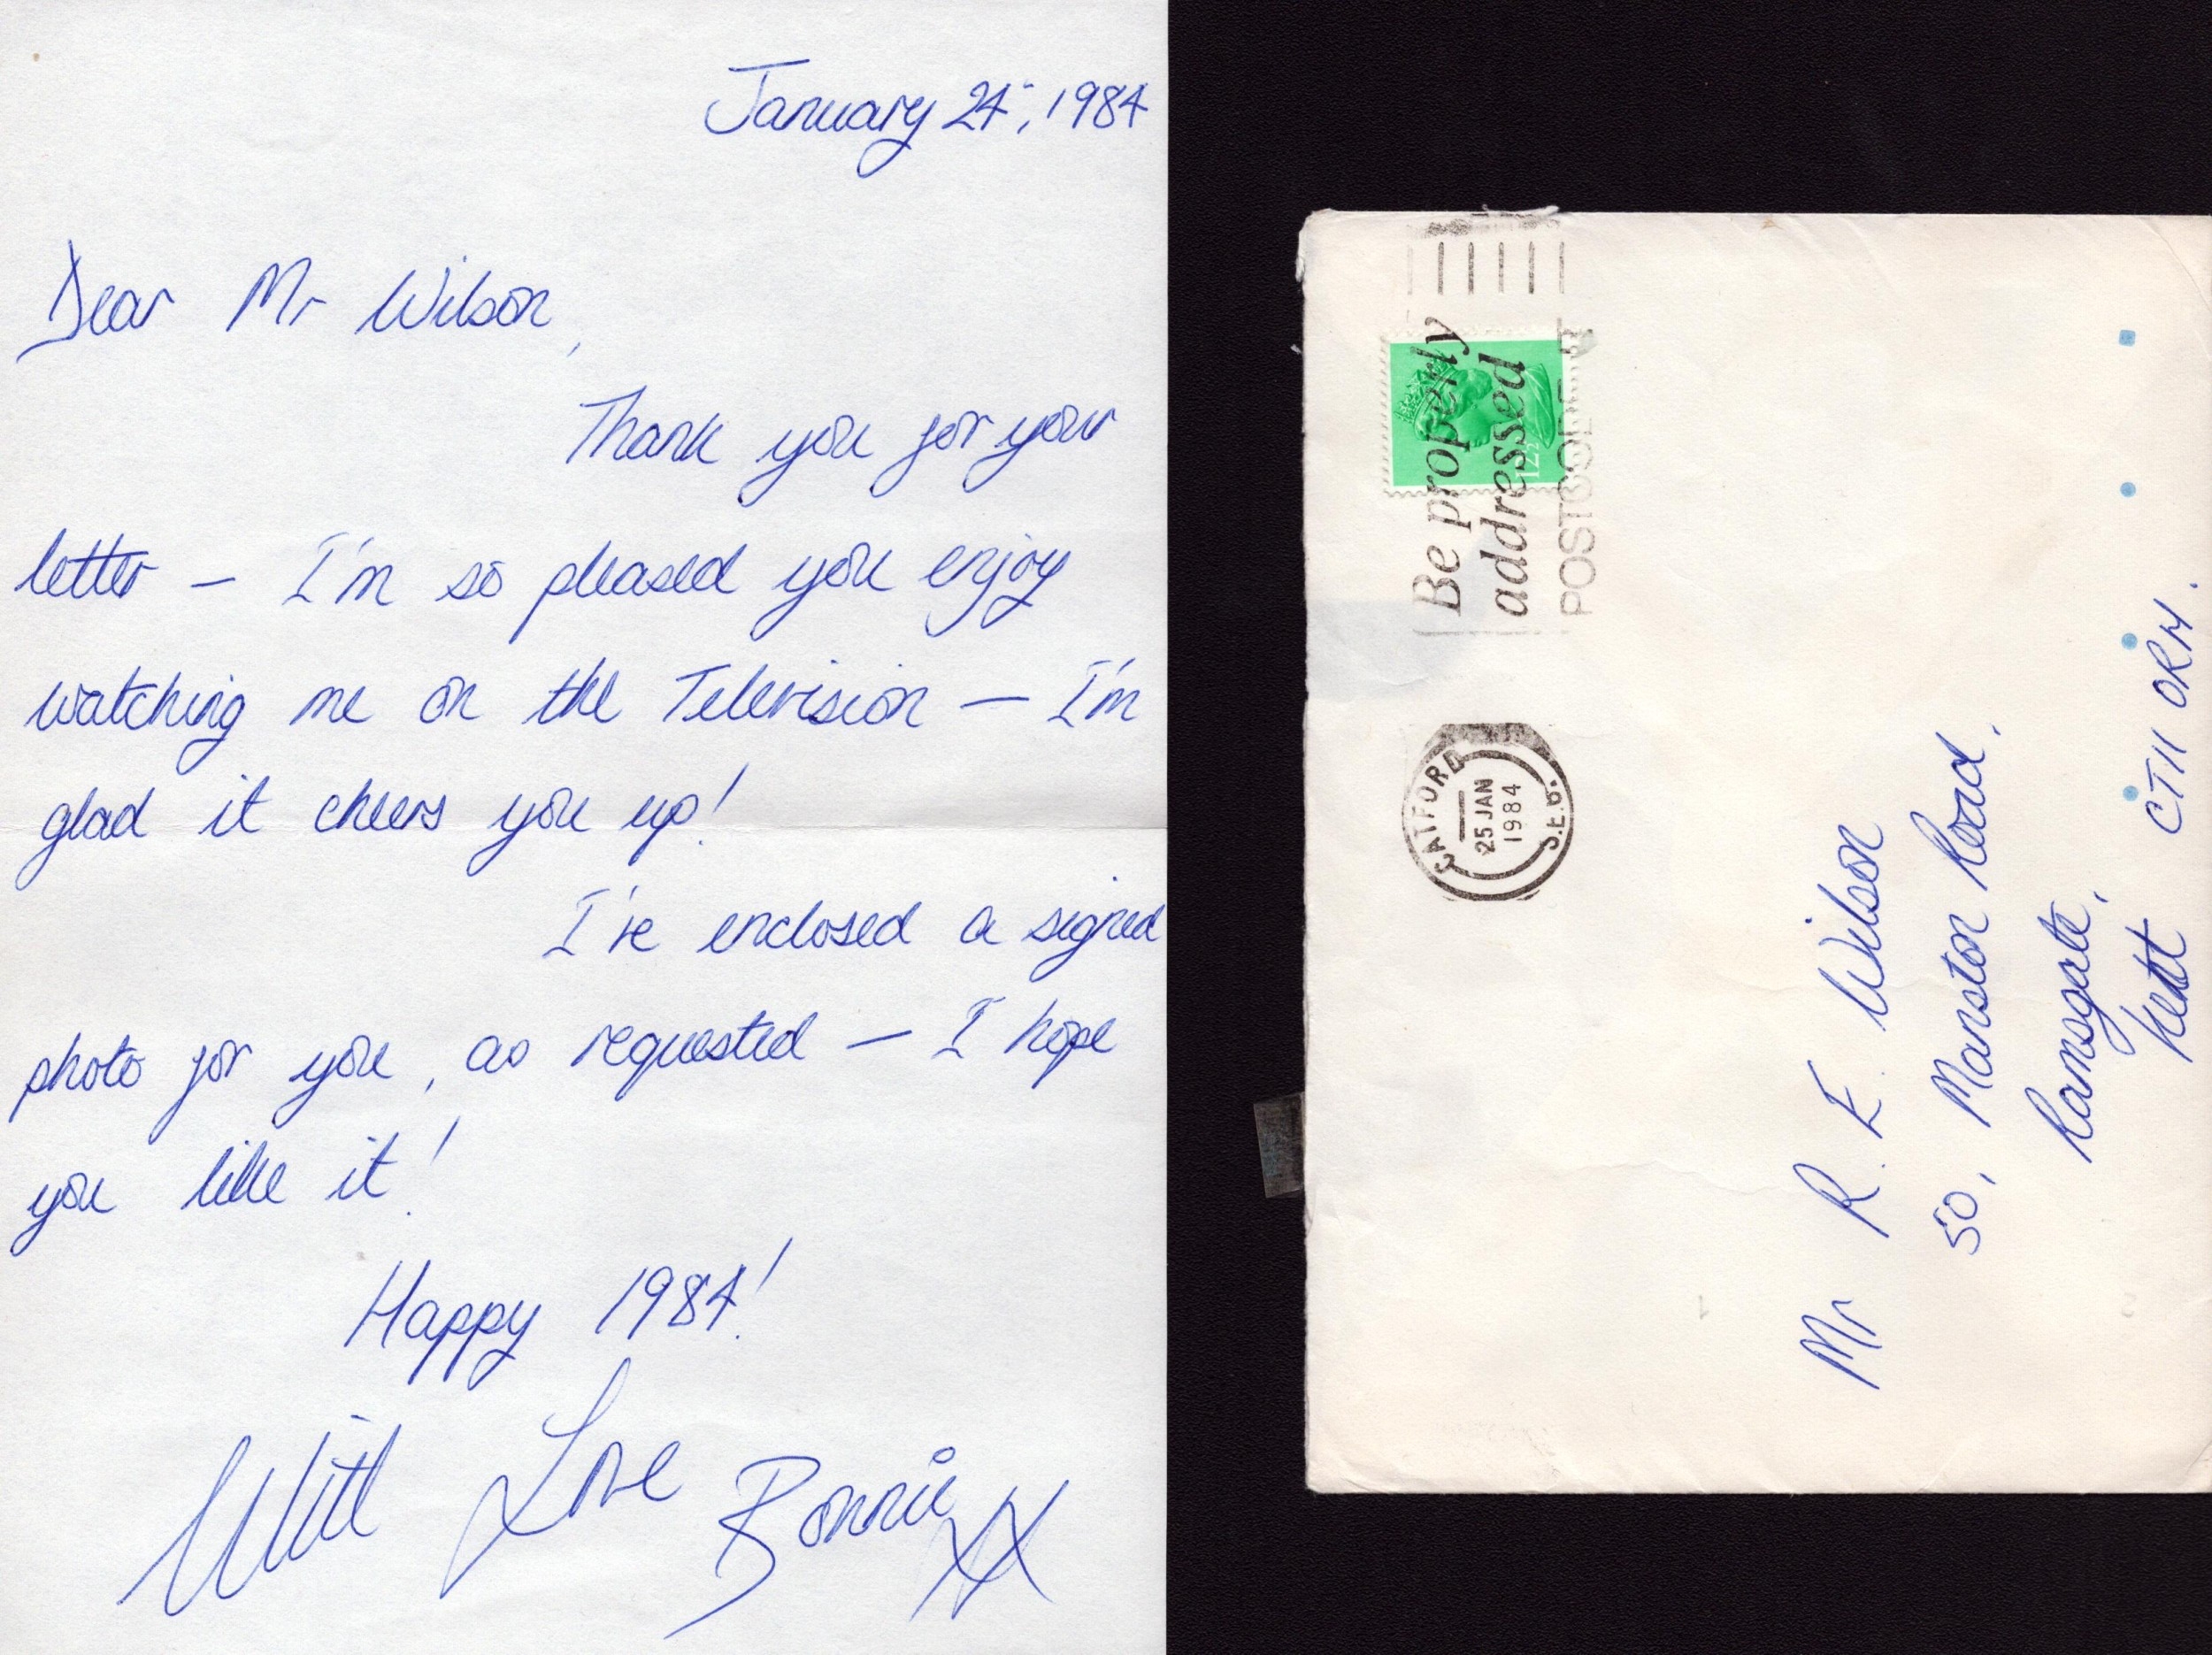 January 24", 1984
Dear Mr Wilson,
Thank you for your
letter – I'm so pleased you enjoy
watching me on the Television – I'm
glad it cheers you up!
I've enclosed a signed
photo for you, as requested – I hope
you like it!
Happy 1984!
With Love Bonnie XX
Be properly
addressed
POSTCODE IT
12½
CATFORD
25 JAN
1984
S.E.6.
Mr R. E. Wilson
50, Manston Road,
Ramsgate,
Kent CT11 0RH.